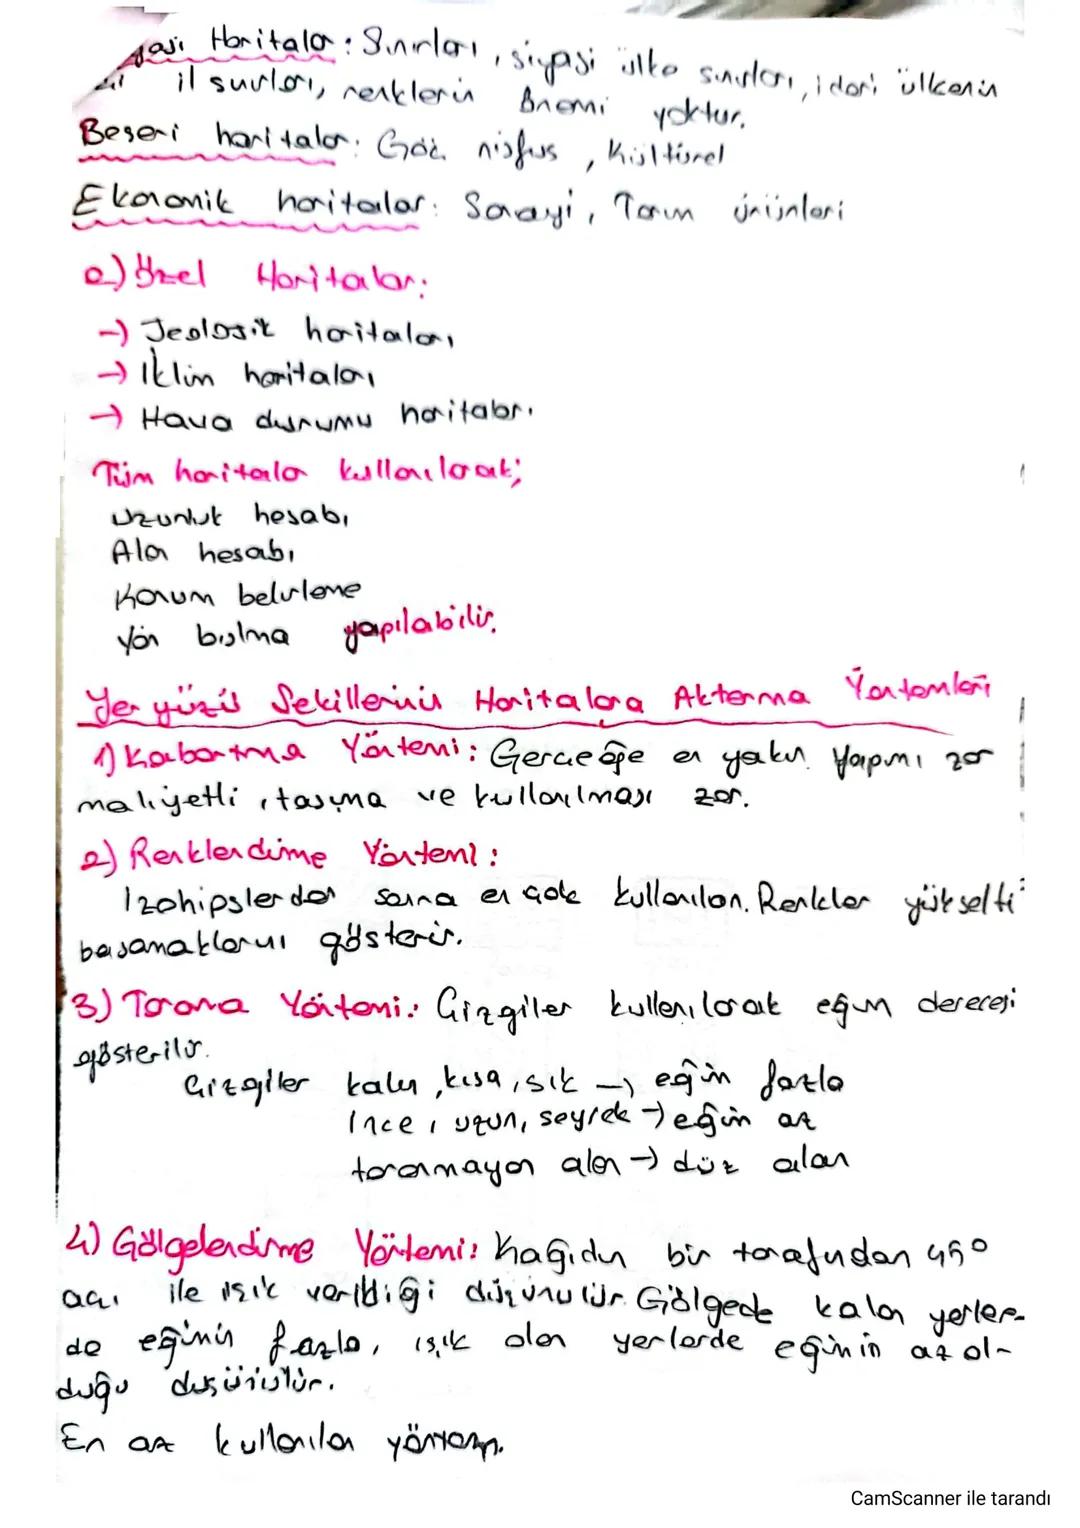 Haritalar: Sınırları, siyasi ülke sınırları, idari ülkenin
il sınırları, renklerin önemi yoktur.
Beşeri haritalar: Göç, nüfus, Kültürel
Ekonomik haritalar: Sanayi, Tarım ürünleri
Özel Haritalar:
→ Jeolojik haritaları
→ İklim haritaları
→ Hava durumu haritaları
Tüm haritalar kullanılarak;
Uzunluk hesabı
Alan hesabı
Konum belirleme
Yön bulma yapılabilir.
Yer yüzü Şekillerinin Haritalara Aktarma Yöntemleri
1) Kabartma Yöntemi: Gerçeğe en yakın. Yapımı zor
maliyetli, taşıma ve kullanılması zor.
2) Renklendirme Yöntemi:
İzohipslerden sonra en çok kullanılan. Renkler yükselti
basamaklarını gösterir.
3) Tarama Yöntemi: Çizgiler kullanılarak eğim derecesi
gösterilir.
Çizgiler kalın, kısa, sık → eğim fazla
İnce, uzun, seyrek → eğim az
taranmayan alan → düz alan
4) Gölgelendirme Yöntemi: Kağıdın bir tarafından 45°
açı ile ışık verildiği düşünülür. Gölgede kalan yerler-
de eğimin fazla, ışık alan yerlerde eğimin az ol-
duğu düşünülür.
En az kullanılan yöntem.
CamScanner ile tarandı